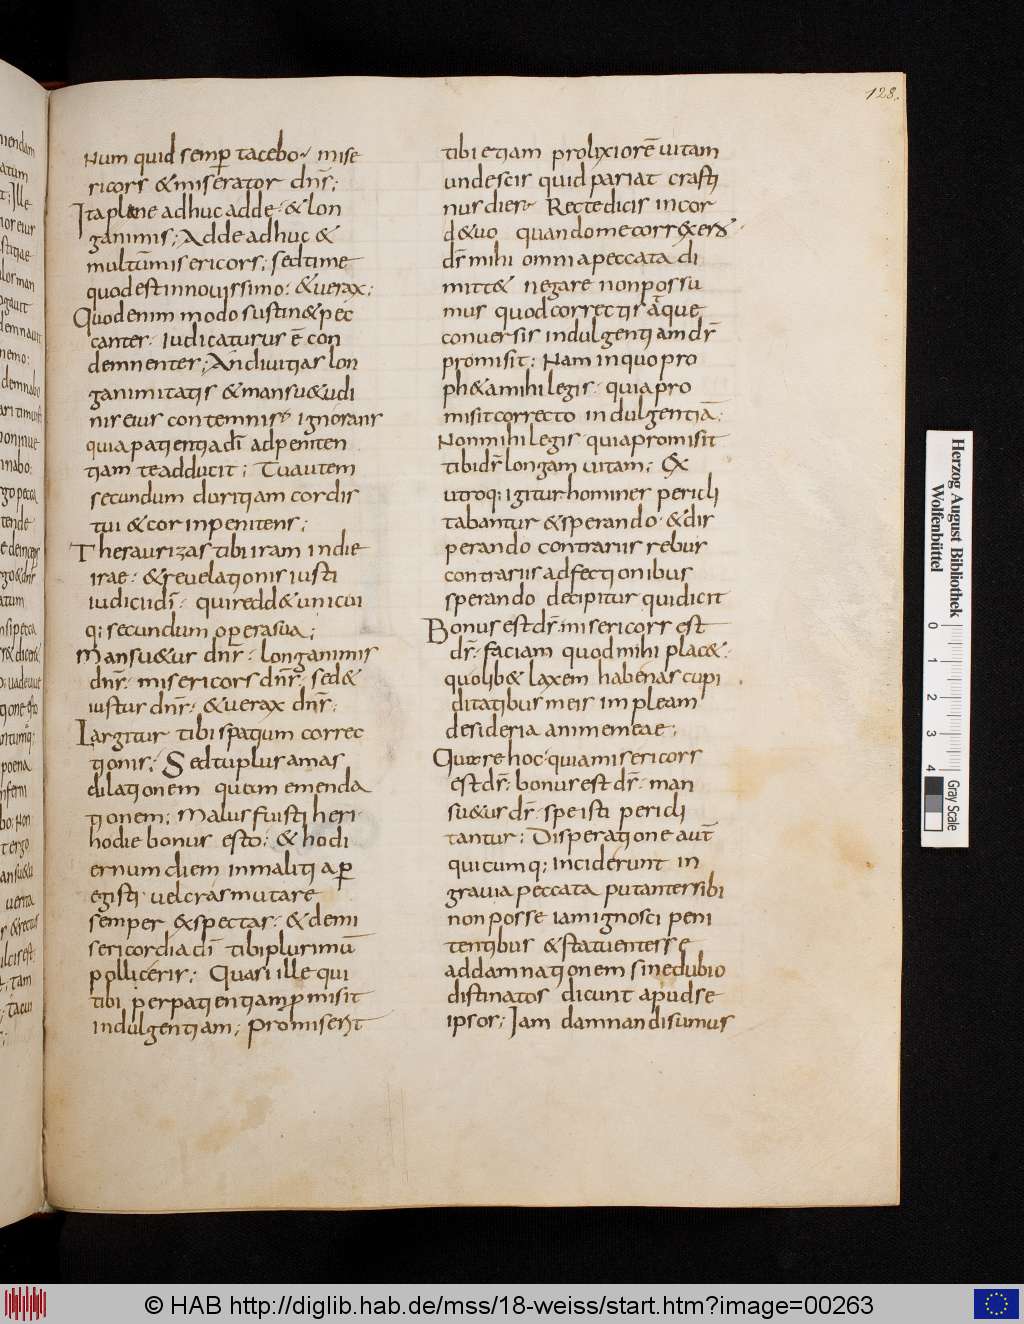 128.
Num quid semp̱ tacebo, mise
ricors &miserator dn̄s;
Itaplane adhuc adde & lon
ganimis; Adde adhuc &
multūmisericors; sedtime
quodestinnouissimo: &uerax;
Quodenim modo sustin&pec
canter· Iudicaturus ē con
demnenter; An diuitias lon
ganimitatis &mansu&udi
nis eius contemnis, ignorans
quia patientiadī adpeniten
tiam teadducit; Tuautem
secundum duritiam cordis
tui &cor inpenitens;
Thesaurizas tibi iram indie
irae· &reuelationis iusti
iudiciidī· quiredd&unicui
q; secundum operasua;
Mansu&us dn̄s· longanimis
dn̄s· misericors dn̄s· sed&
iustus dn̄s· &uerax dn̄s·
Largitur tibi spatium correc
tionis; Sedtuplusamas
dilationem quam emenda
tionem; Malus fuisti heri·
hodie bonus esto; & hodi
ernum diem inmalitia p̱
egisti· uelcrasmutare
semper &spectas· &demi
sericordiadī tibiplurimū
polliceris; Quasi ille qui
tibi perpatientiam p̱misit
indulgentiam; promiserit
tibi etiam prolyxiorē uitam
undescis quid pariat crasti
nusdies, Recte dicis incor
d&uo quandomecorrexero·
ds̄ mihi omniapeccata di
mitt& negare nonpossu
mus quodcorrectis atque
conuersis indulgentiam ds̄
promisit; Nam inquo pro
ph&amihi legis· quia pro
misitcorrecto indulgentiā;
Nonmihi legis quiapromisit
tibi ds̄ longam uitam; Ex
utroq; igitur homines pericli
tabantur &sperando· &dis
perando contrariis rebus
contrariis adfectionibus
sperando decipitur quidicit
Bonus est ds̄·misericors est
ds̄· faciam quodmihi plac&·
quolib& laxem habenas cupi
ditatibusmeis impleam
desideria animemeae;
Quare hoc·quiamisericors
est ds̄· bonus est ds̄· man
su&us ds̄· speisti pericli
tantur; Disperatione aut̄
quicumq; inciderunt in
grauia peccata putantes sibi
non posse iamignosci peni
tentibus &statuentesse
addamnationem sinedubio
distinatos dicunt apudse
ipsos; Iam damnandisumus
Herzog August Bibliothek
Wolfenbüttel
0 1 2 3 4
Gray Scale
© HAB http://diglib.hab.de/mss/18-weiss/start.htm?image=00263